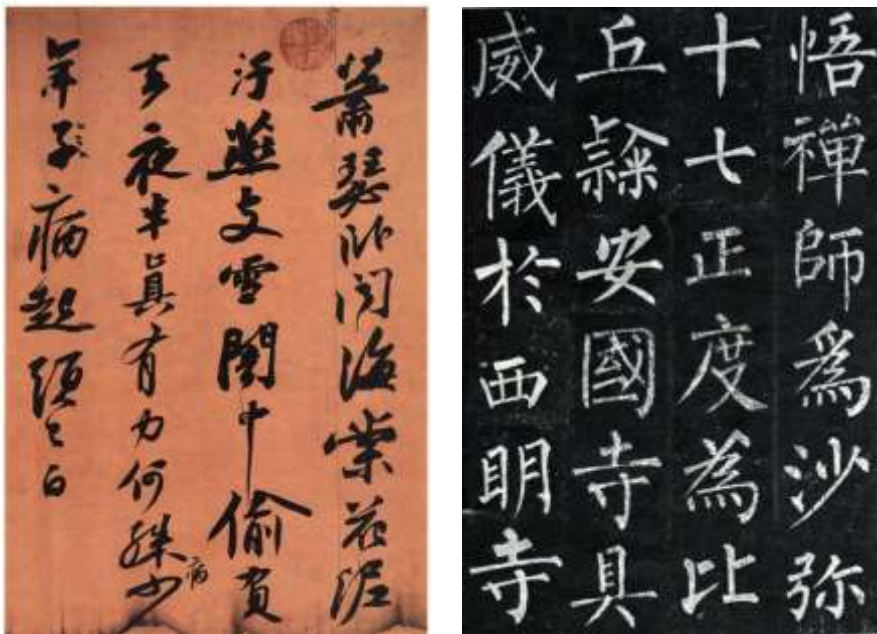 萧瑟卧闻海棠花泥
汙燕支雪闇中偷負
去夜半真有力何殊少
年子病起頭已白
病
悟禪師為沙弥
十七正度為比
丘隸安國寺具
威儀於西明寺